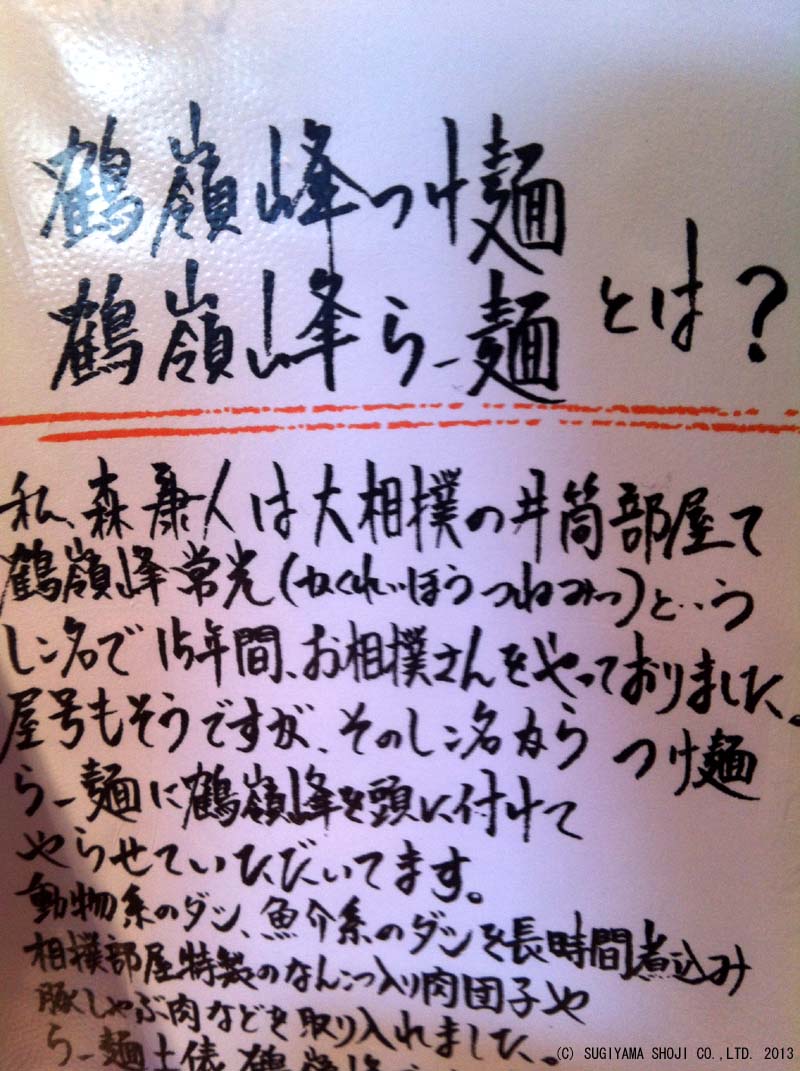 鶴嶺峰つけ麺
鶴嶺峰らー麺とは?
私、森康人は大相撲の井筒部屋で
鶴嶺峰常光(かくれいほうつねみつ)という
しこ名で15年間、お相撲さんをやっておりました。
屋号もそうですが、そのしこ名からつけ麺
らー麺に鶴嶺峰を頭に付けて
やらせていただいてます。
動物系のダシ、魚介系のダシを長時間煮込み
相撲部屋特製のなんこつ入り肉団子や
豚しゃぶ肉などを取り入れました。
らー麺土俵鶴嶺峰
(C) SUGIYAMA SHOJI CO.,LTD. 2013